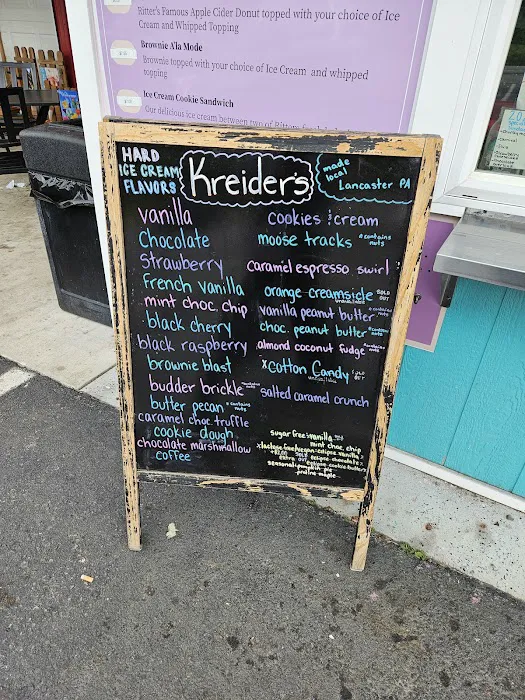 Ritter's Famous Apple Cider Donut topped with your choice of Ice
Cream and Whipped Topping
Brownie Ala Mode
Brownie topped with your choice of Ice Cream and whipped
topping
Ice Cream Cookie Sandwich
Our delicious ice cream between two of
HARD
ICE CREAM
FLAVORS
Kreider's
made
local
Lancaster PA
vanilla
Chocolate
strawberry
French vanilla
mint choc. chip
black cherry
black raspberry
brownie blast
budder brickle
butter pecan *contains nuts
caramel choc truffle
cookie dough
chocolate marshmallow
coffee
cookies & cream
moose tracks *contains nuts
caramel espresso swirl
orange creamsicle SOLD OUT
vanilla peanut butter *contains nuts
choc. peanut butter *contains nuts
almond coconut fudge
x Cotton Candy
salted caramel crunch
sugar free: vanilla
mint choc. chip
lactose free/vegan: eclipse vanilla
eclipse chocolate
eclipse cookie butter
seasonal: pumpkin pie
praline maple